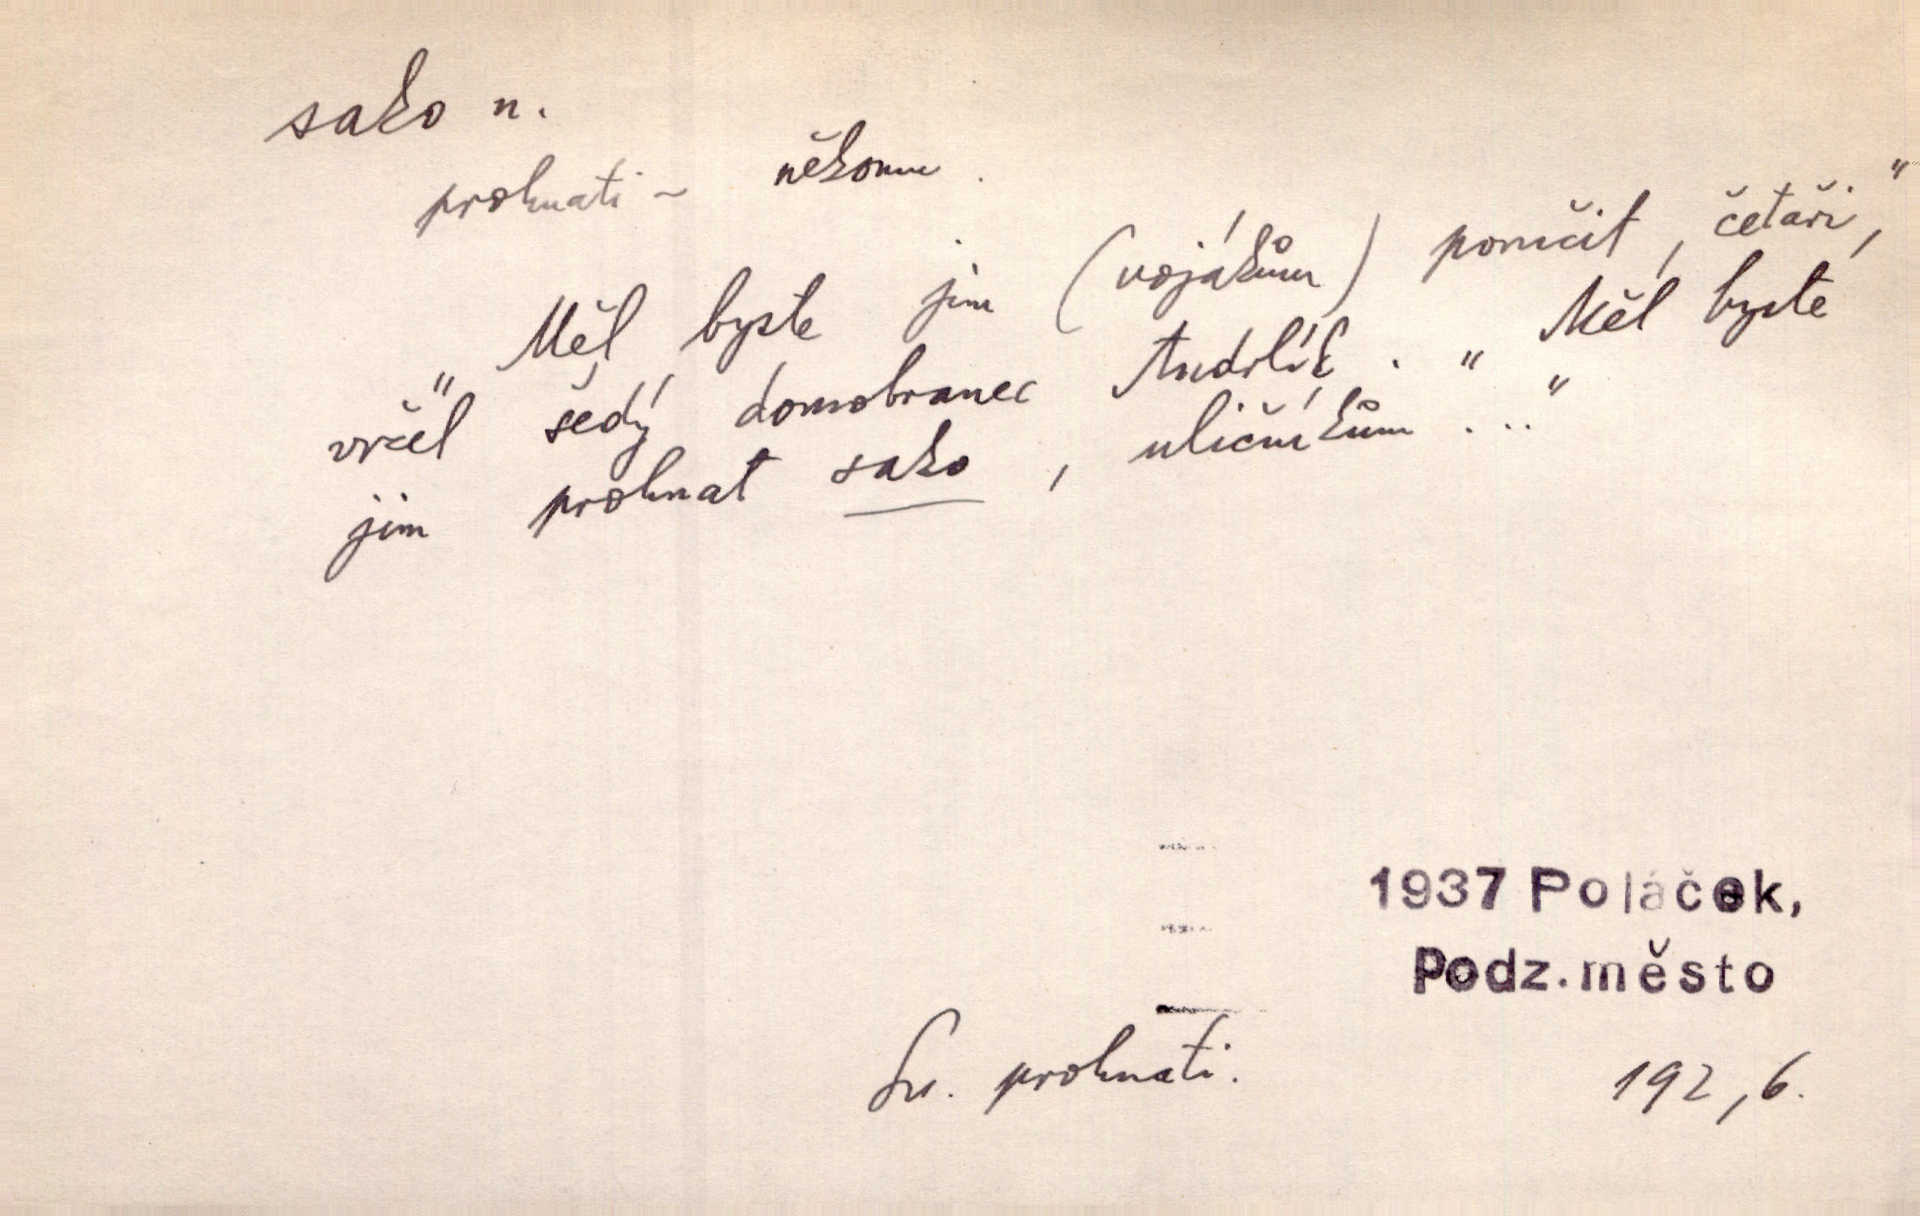 sako n.
prohnati ~ někomu.
„Měl byste jim (vojákům) poručit, četaři,"
vrčel šedý domobranec Andrlík. „Měl byste
jim prohnat sako, uličníkům..."
1937 Poláček,
Podz.město
Sv. prohnati. 192,6.